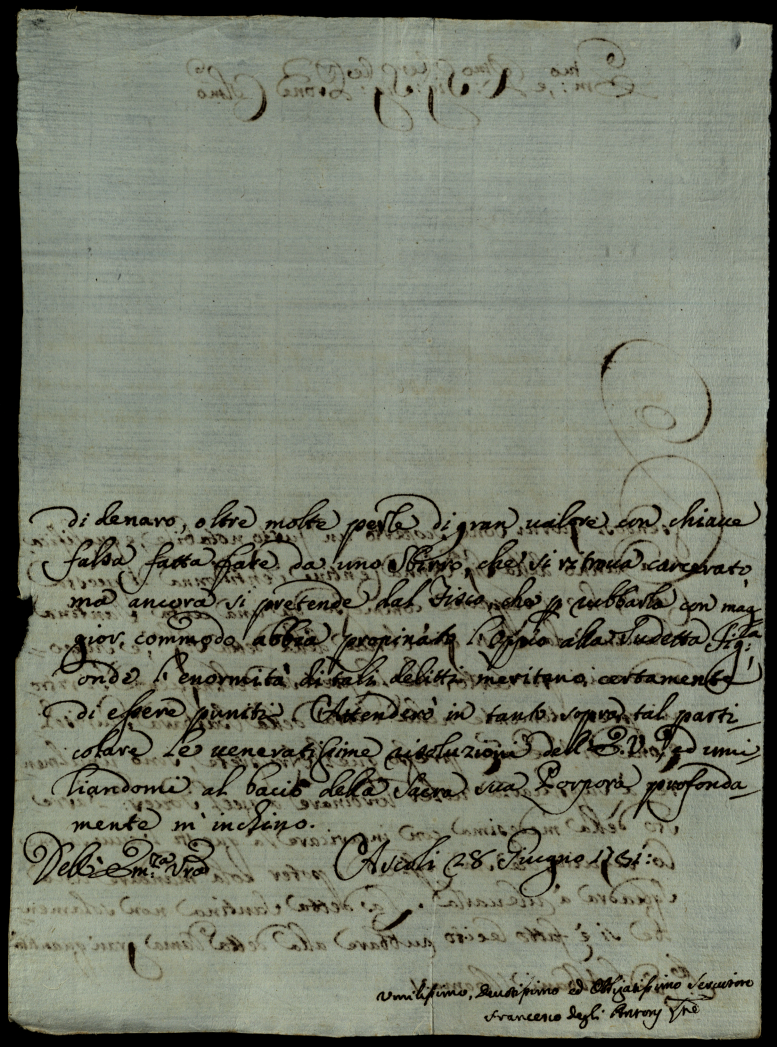 di denaro, oltre molte perle di gran valore con chiave
falsa fatta fare da uno Sbirro, che si ritrova carcerato
mà ancora si pretende dal Fisco, che p rubbarla con mag
gior commodo abbia propinato l'Oppio alla sudetta Sig:ra
onde l'enormità di tali delitti meritano certamente
di essere puniti. Attenderò in tanto sopra tal parti-
colare le veneratissime risoluzioni dell'E.V. ed umi
liandomi al bacio della Sacra sua Porpora profonda-
mente m'inchino.
Dell'Em:za Vra Ascoli 28. Giugno 1731:
Umilissimo, Devotissimo ed Obbligatissimo Servitore
Francesco degli Antonj